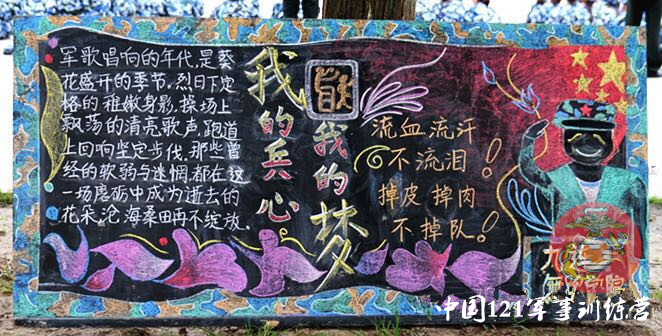 军歌唱响的年代，是葵
花盛开的季节，烈日下定
格的稚嫩身影，操场上
飘荡的清亮歌声，跑道
上回响坚定步伐，那些曾
经的软弱与迷惘，都在这
一场磨砺中成为逝去的
花朵，沧海桑田再不绽放。
我的兵心
我的梦
流血流汗
不流泪！
掉皮掉肉
不掉队！
中国121军事训练营